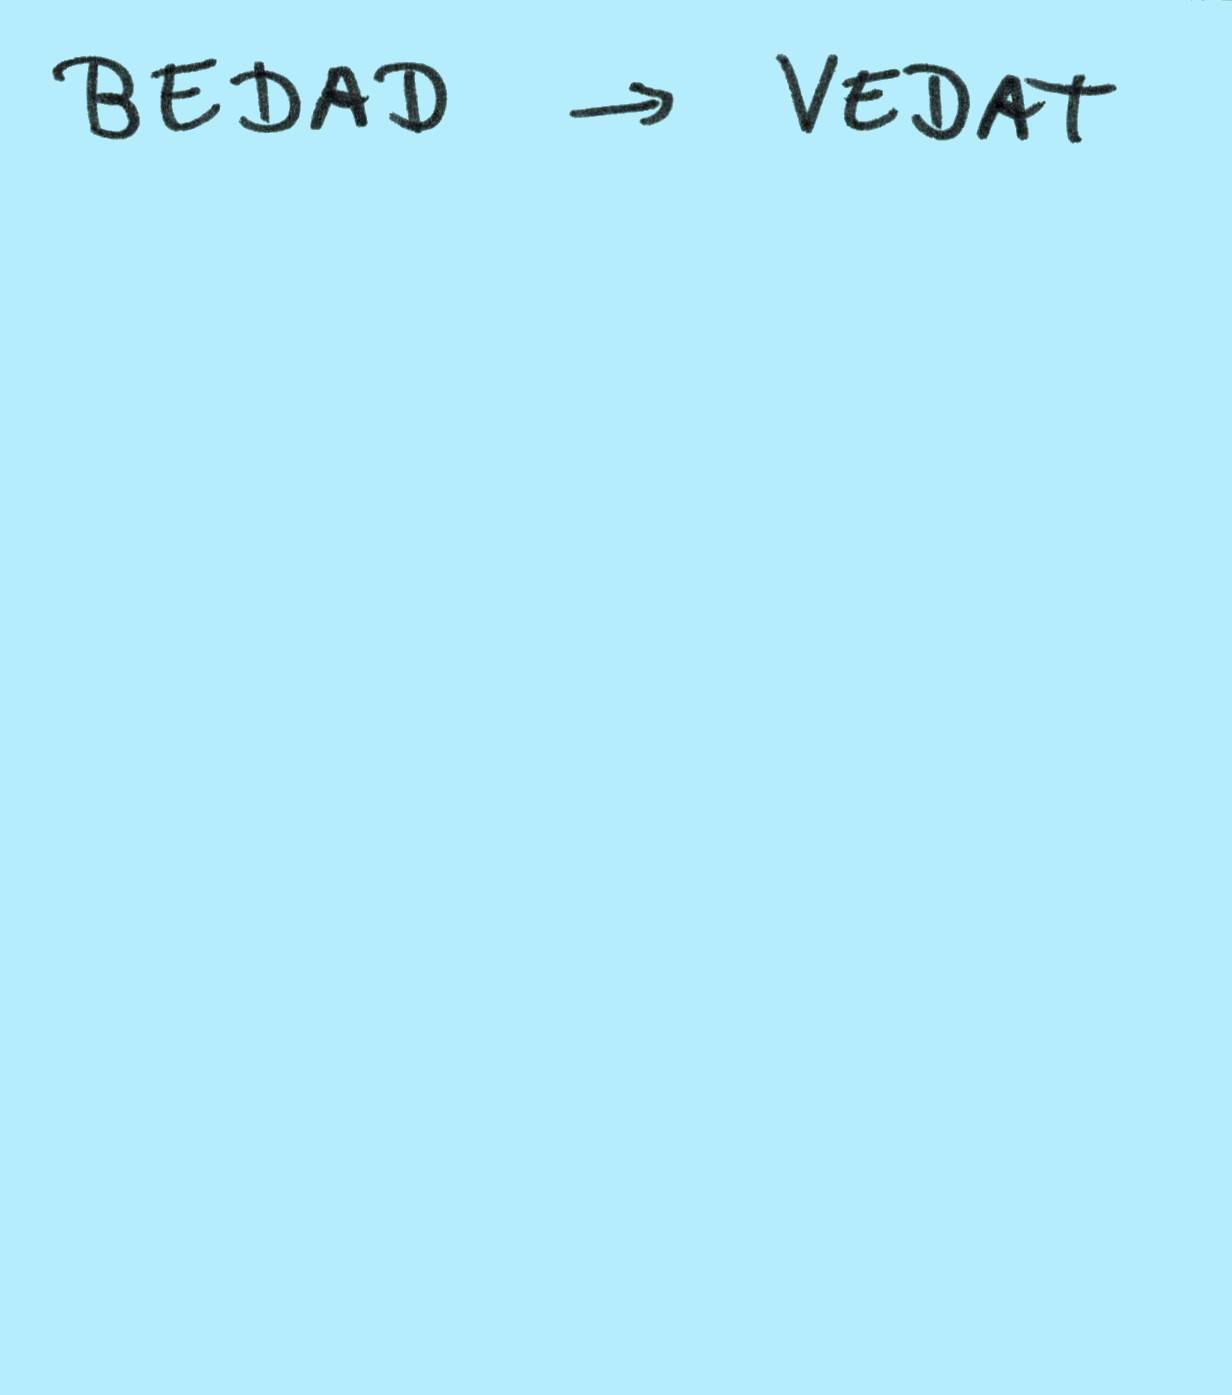 BEDAD → VEDAT